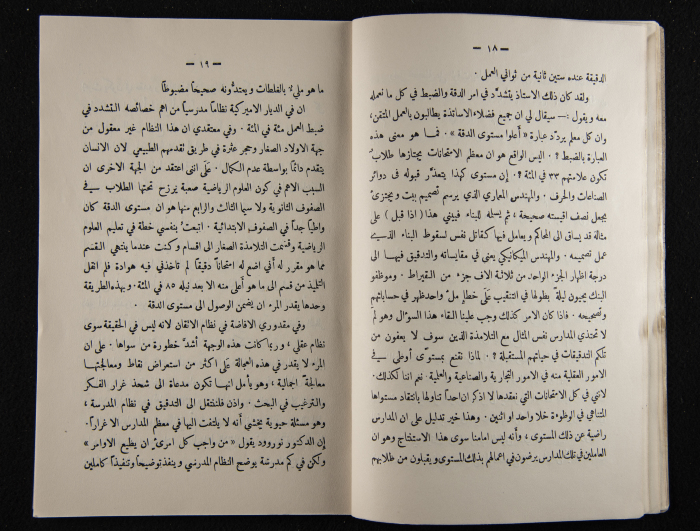 — ١٨ —
الدقيقة عنده ستين ثانية من ثواني العمل .
ولقد كان ذلك الاستاذ يتشدّد في امر الدقة والضبط في كل ما نعمله
معه ويقول :— سيقال لي ان جميع فضلاء الاساتذة يطالبون بالعمل المتقن ،
وان كل معلم يردّد عبارة « أعلوا مستوى الدقة » . فما هو معنى هذه
العبارة بالضبط ؟ . اليس الواقع هو ان معظم الامتحانات يجتازها طلاب
تكون علامتهم ٣٣ في المئة ؟ . إن مستوى كهذا يتعذّر قبوله في دوائر
الصناعات والحرف . والمهندس المعماري الذي يرسم تصميم بيت ويجتزئ
بجعل نصف اقيسته صحيحة ، ثم يسله البناء فيبني هذا ( اذا قبل ) على
مثاله قد يساق الى المحاكم ويعامل فيها كقاتل نفس لسقوط البناء الذي
عمل تصميمه . والمهندس الميكانيكي يعنى في مقايساته والتدقيق فيها الى
درجة اظهار الجزء الواحد من ثلاثة الاف جزء من القيراط . وموظفو
البنك يحيون ليلة بطولها في التنقيب عَلَى خطل مليٍ واحد ظهر في حساباتهم
وتصحيحه . فاذا كان الامر كذلك وجب علينا القاء هذا السؤال وهو لمَ
لا تحتذي المدارس نفس المثال مع التلامذة الذين سوف لا يعفون من
تلكم التدقيقات في حياتهم المستقبلة ؟ . لماذا نقنع بمستوًى أوطى في
الامور العقلية منه في الامور التجارية والصناعية والعملية . نعم اننا كذلك .
لانني في كل الامتحانات التي نعقدها لا اذكر ان احداً تناولها بانتقاد مستواها
المتناهي في الوطوءة خلا واحد او اثنين . وهذا خير تدليل على ان المدارس
راضية عن ذلك المستوى ، وأنه ليس امامنا سوى هذا الاستنتاج وهو ان
العاملين في تلك المدارس يرضون في اعمالهم بذلك المستوى ويقبلون من طلابهم
— ١٩ —
ما هو مليءٌ بالغلطات ويعتدُّونه صحيحاً مضبوطاً
ان في الديار الاميركية نظاماً مدرسياً من اهم خصائصه التشدد في
ضبط العمل مئة في المئة . وفي معتقدي ان هذا النظام غير معقول من
جهة الاولاد الصغار وحجر عثرة في طريق تقدمهم الطبيعي لان الانسان
يتقدم دائماً بواسطة عدم الكمال . عَلَى انني اعتقد من الجهة الاخرى ان
السبب الاهم في كون العلوم الرياضية صعبة يرزح تحتها الطلاب في
الصفوف الثانوية ولا سيما الثالث والرابع منها هو ان مستوى الدقة كان
واطياً جداً في الصفوف الابتدائية . اتبعتُ بنفسي خطة في تعليم العلوم
الرياضية وقسَّمت التلامذة الصغار الى اقسام وكنت عندما ينتهي القسم
مما هو مقرر له أني اضع له امتحاناً دقيقاً لم تاخذني فيه هوادة فلم انقل
التلميذ من قسم الى ما هو أعلى منه الا بعد نيله ٨٥ في المئة . وبهذه الطريقة
وحدها يقدر المرء ان يضمن الوصول الى مستوى الدقة .
وفي مقدوري الافاضة في نظام الاتقان لانه ليس في الحقيقة سوى
نظام عقلي ، وربما كانت هذه الوجهة أشدَّ خطورة من سواها . على ان
المرء لا يقدر في هذه العجالة عَلَى اكثر من استعراض نقاط ومعالجتها
معالجةً اجمالية ، وهو يأمل انها تكون مدعاة الى شحذ غرار الفكر
والترغيب في البحث . واذن فلننتقل الى التدقيق في نظام المدرسة ،
وهو مسئلة حيوية يخشى أنه لا يلتفت اليها في معظم المدارس الا غراراً .
إن الدكتور نوروود يقول « من واجب كل امرئٍ ان يطيع الاوامر »
ولكن في كم مدرسة يوضح النظام المدرسي وينفذ توضيحاً وتنفيذاً كاملين